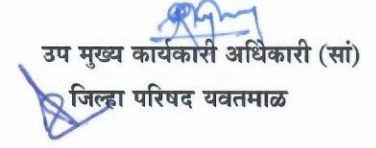 उप मुख्य कार्यकारी अधिकारी (सां)
जिल्हा परिषद यवतमाळ